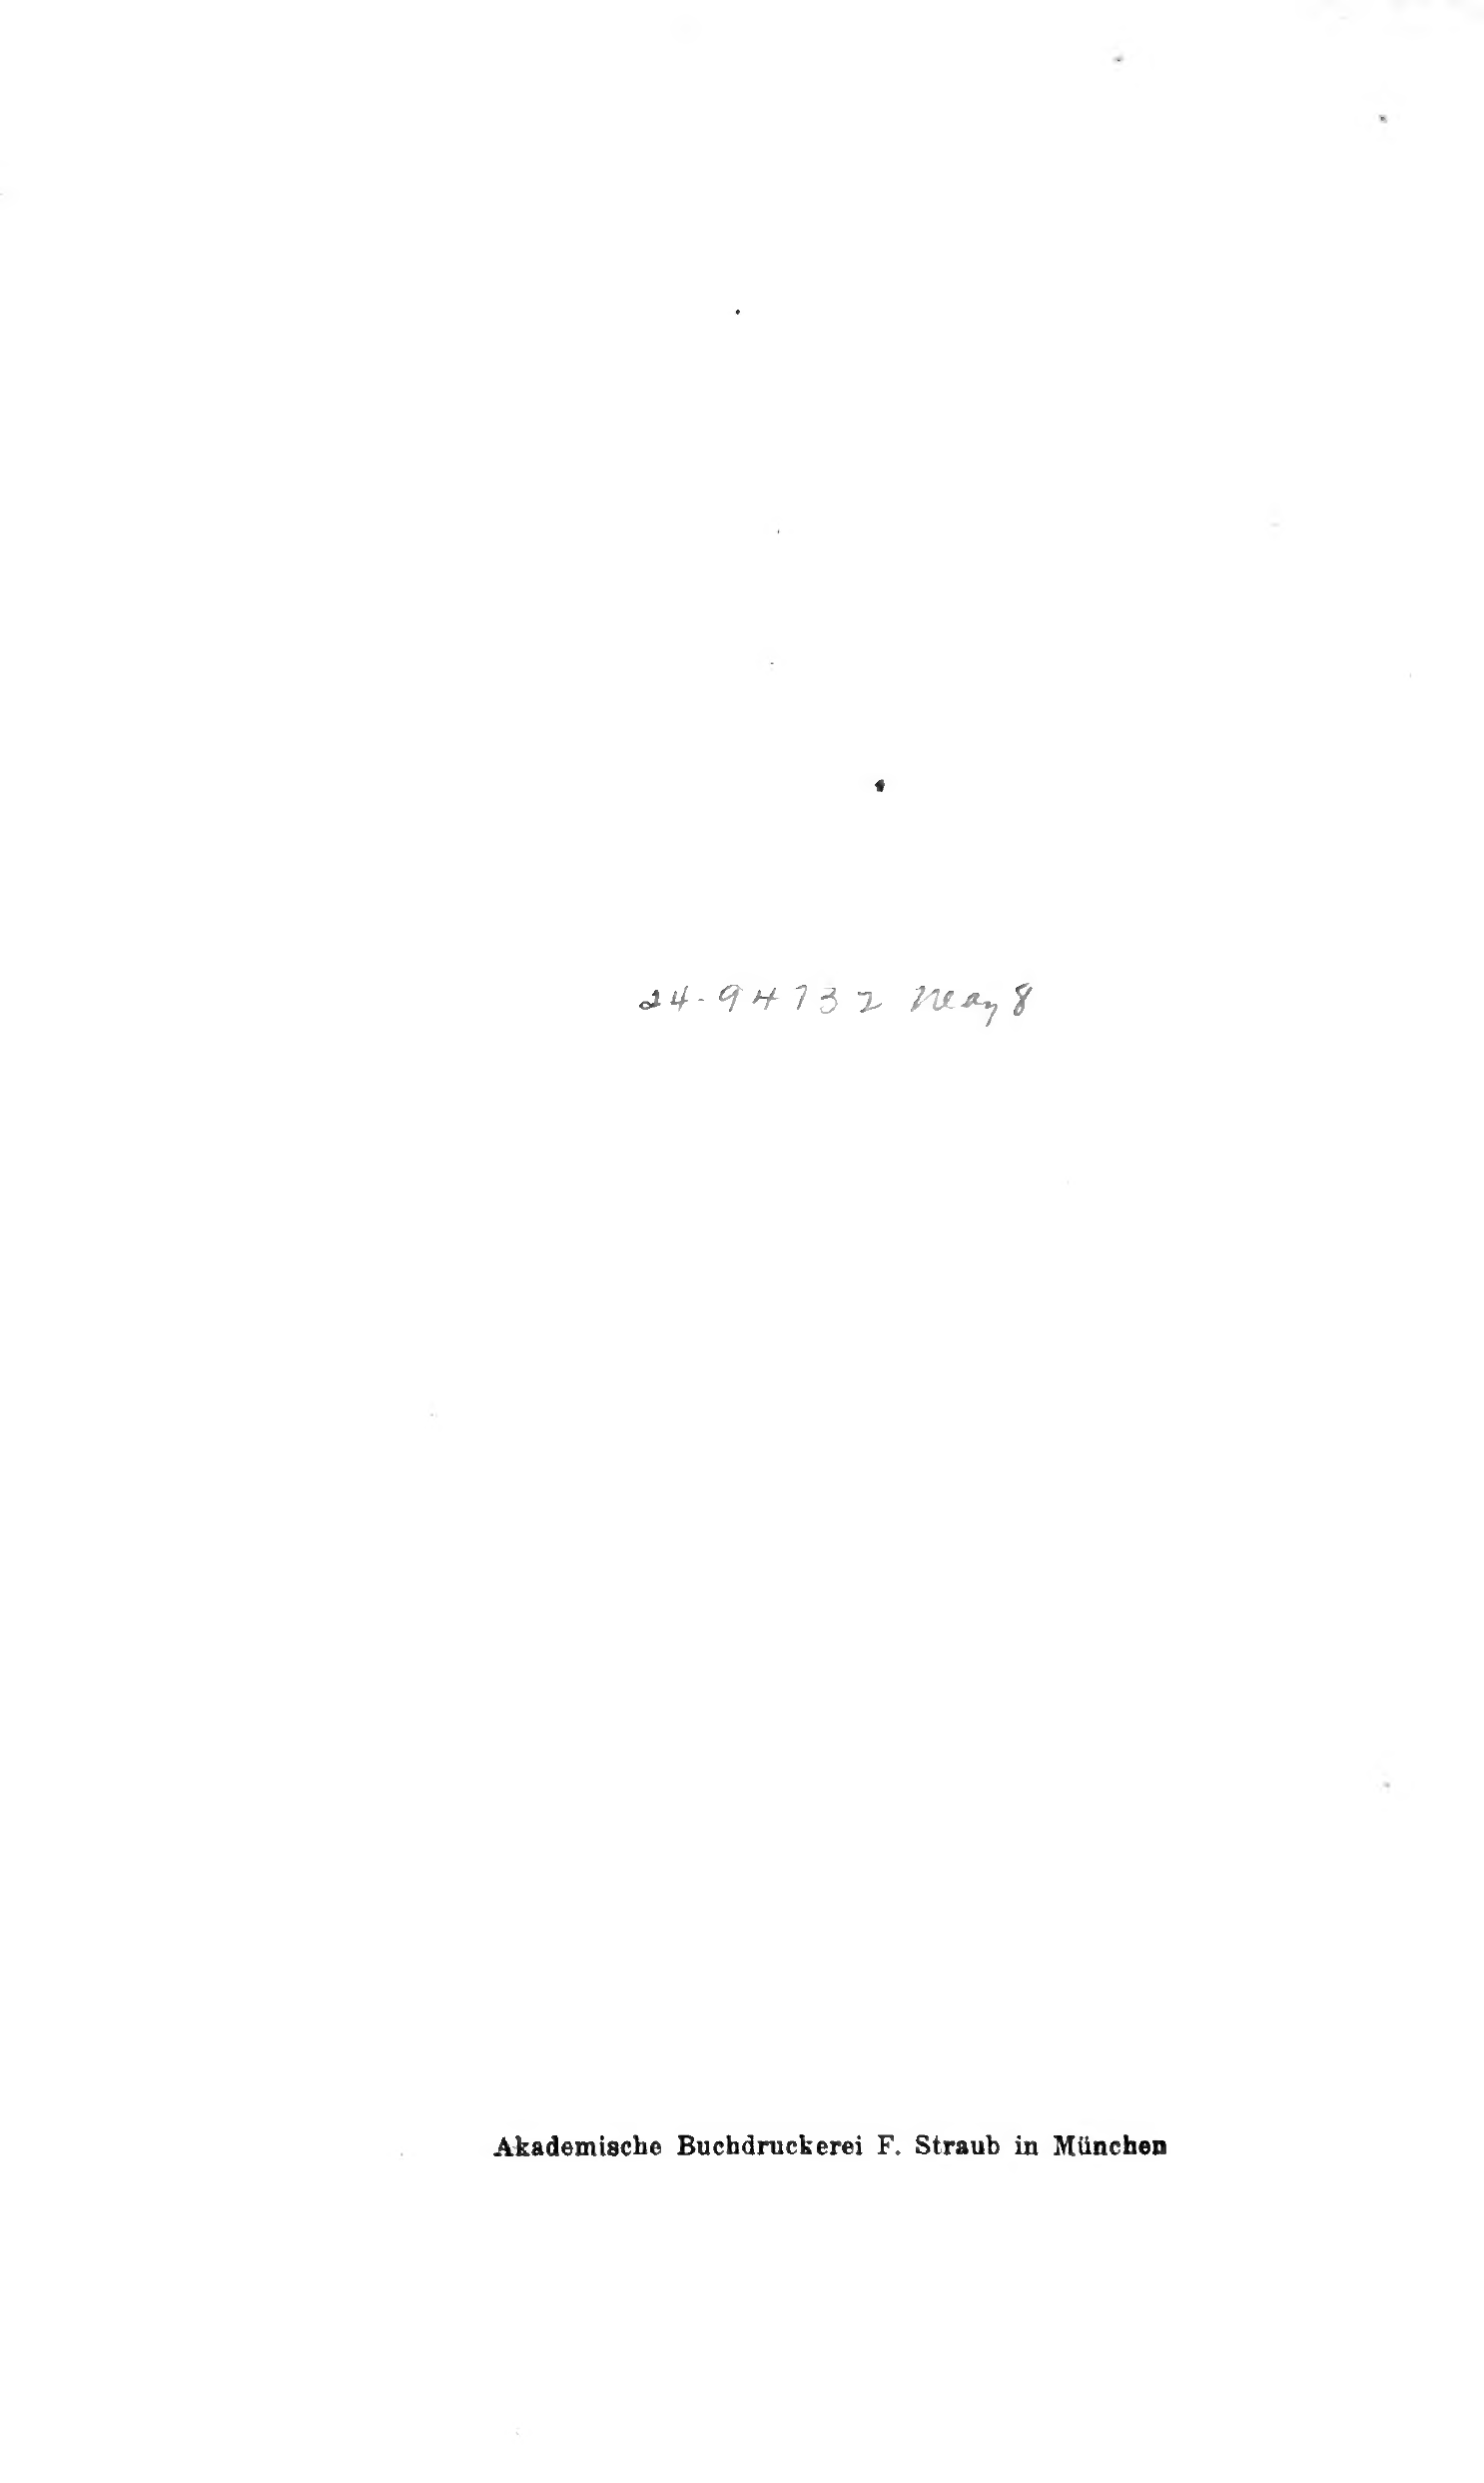 24-94732 May 8
Akademische Buchdruckerei F. Straub in München